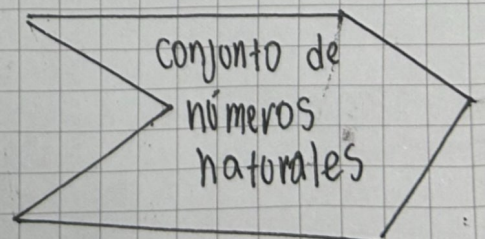 conjunto de
números
naturales